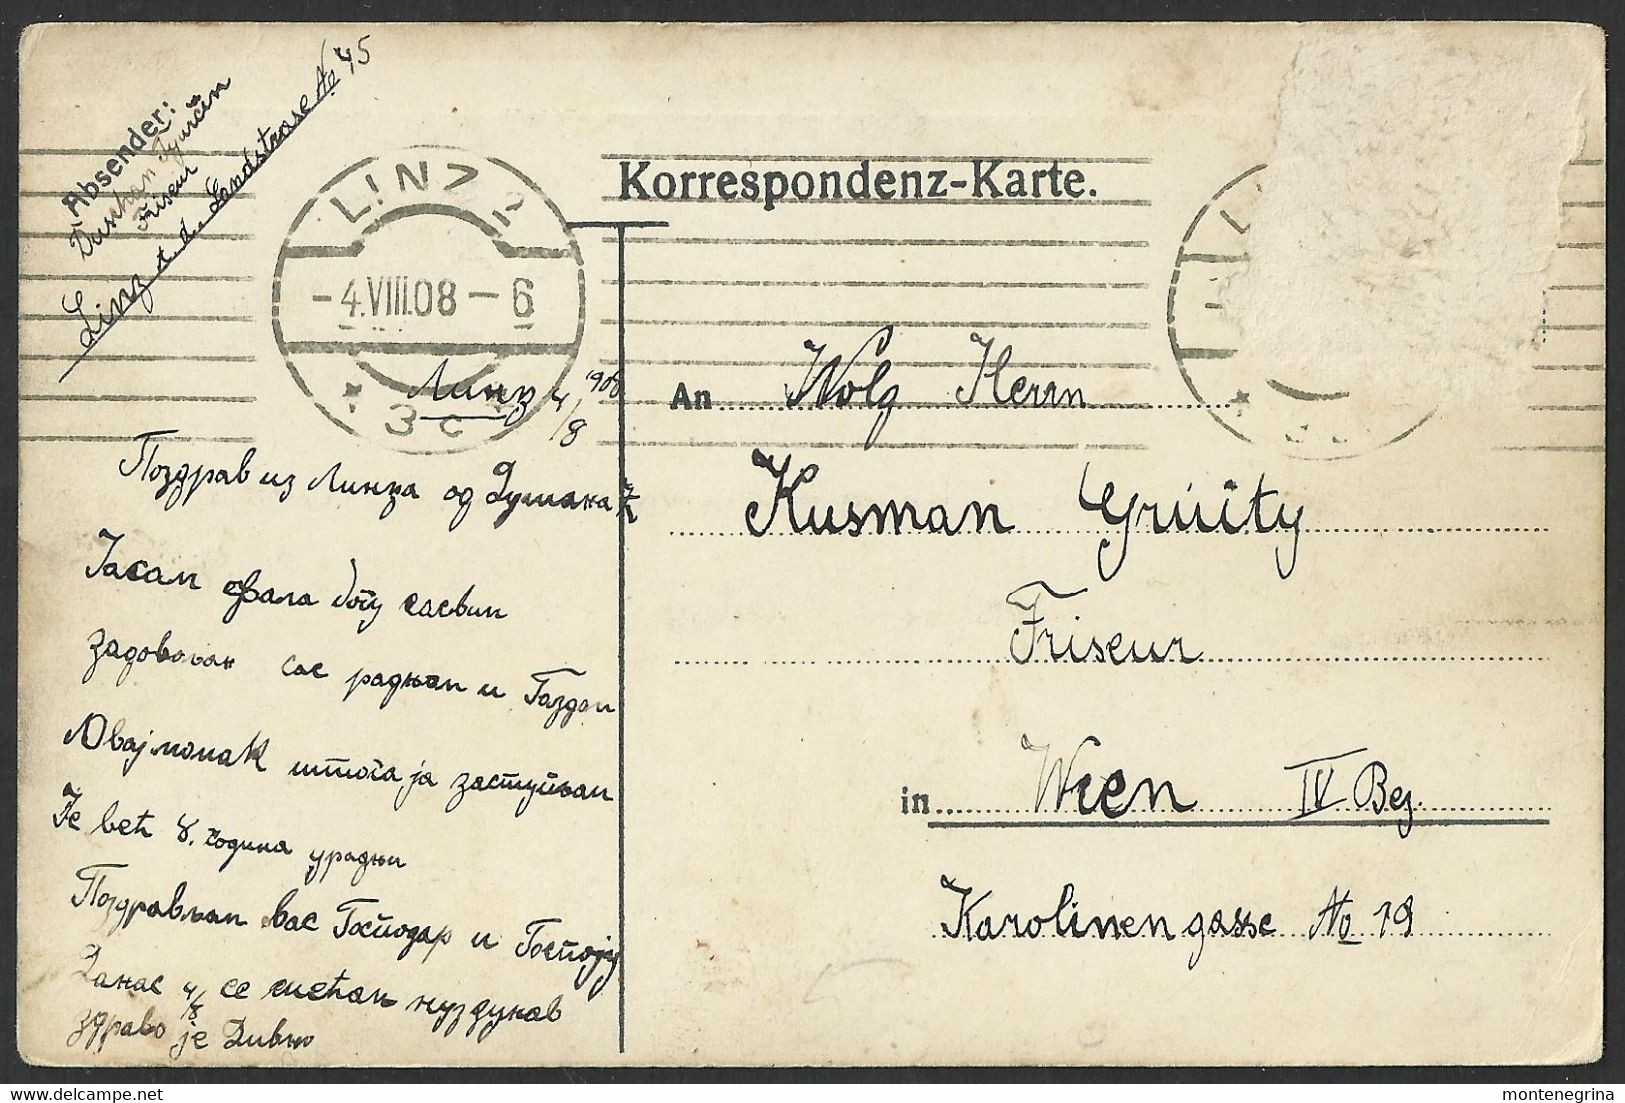 Absender:
Dushan
Friseur
Linz a. d. Landstrase No 45
LINZ 2
-4.VIII.08-6
* 3c
Korrespondenz-Karte.
Линц 4/8 908
Поздрав из Линца од Душана
Јасам Фала богу сасвим
задовољан сас радњам и Газдом
Овај момак штога ја заступам
Је већ 8. година у радњи
Поздрављам вас Господар и Госпоју
Данас 4/8 се сиећам
здраво је Дивно
An Wolg Herrn
Kusman
Friseur
in Wien IV Bez.
Karolinengasse No 19
montenegrina